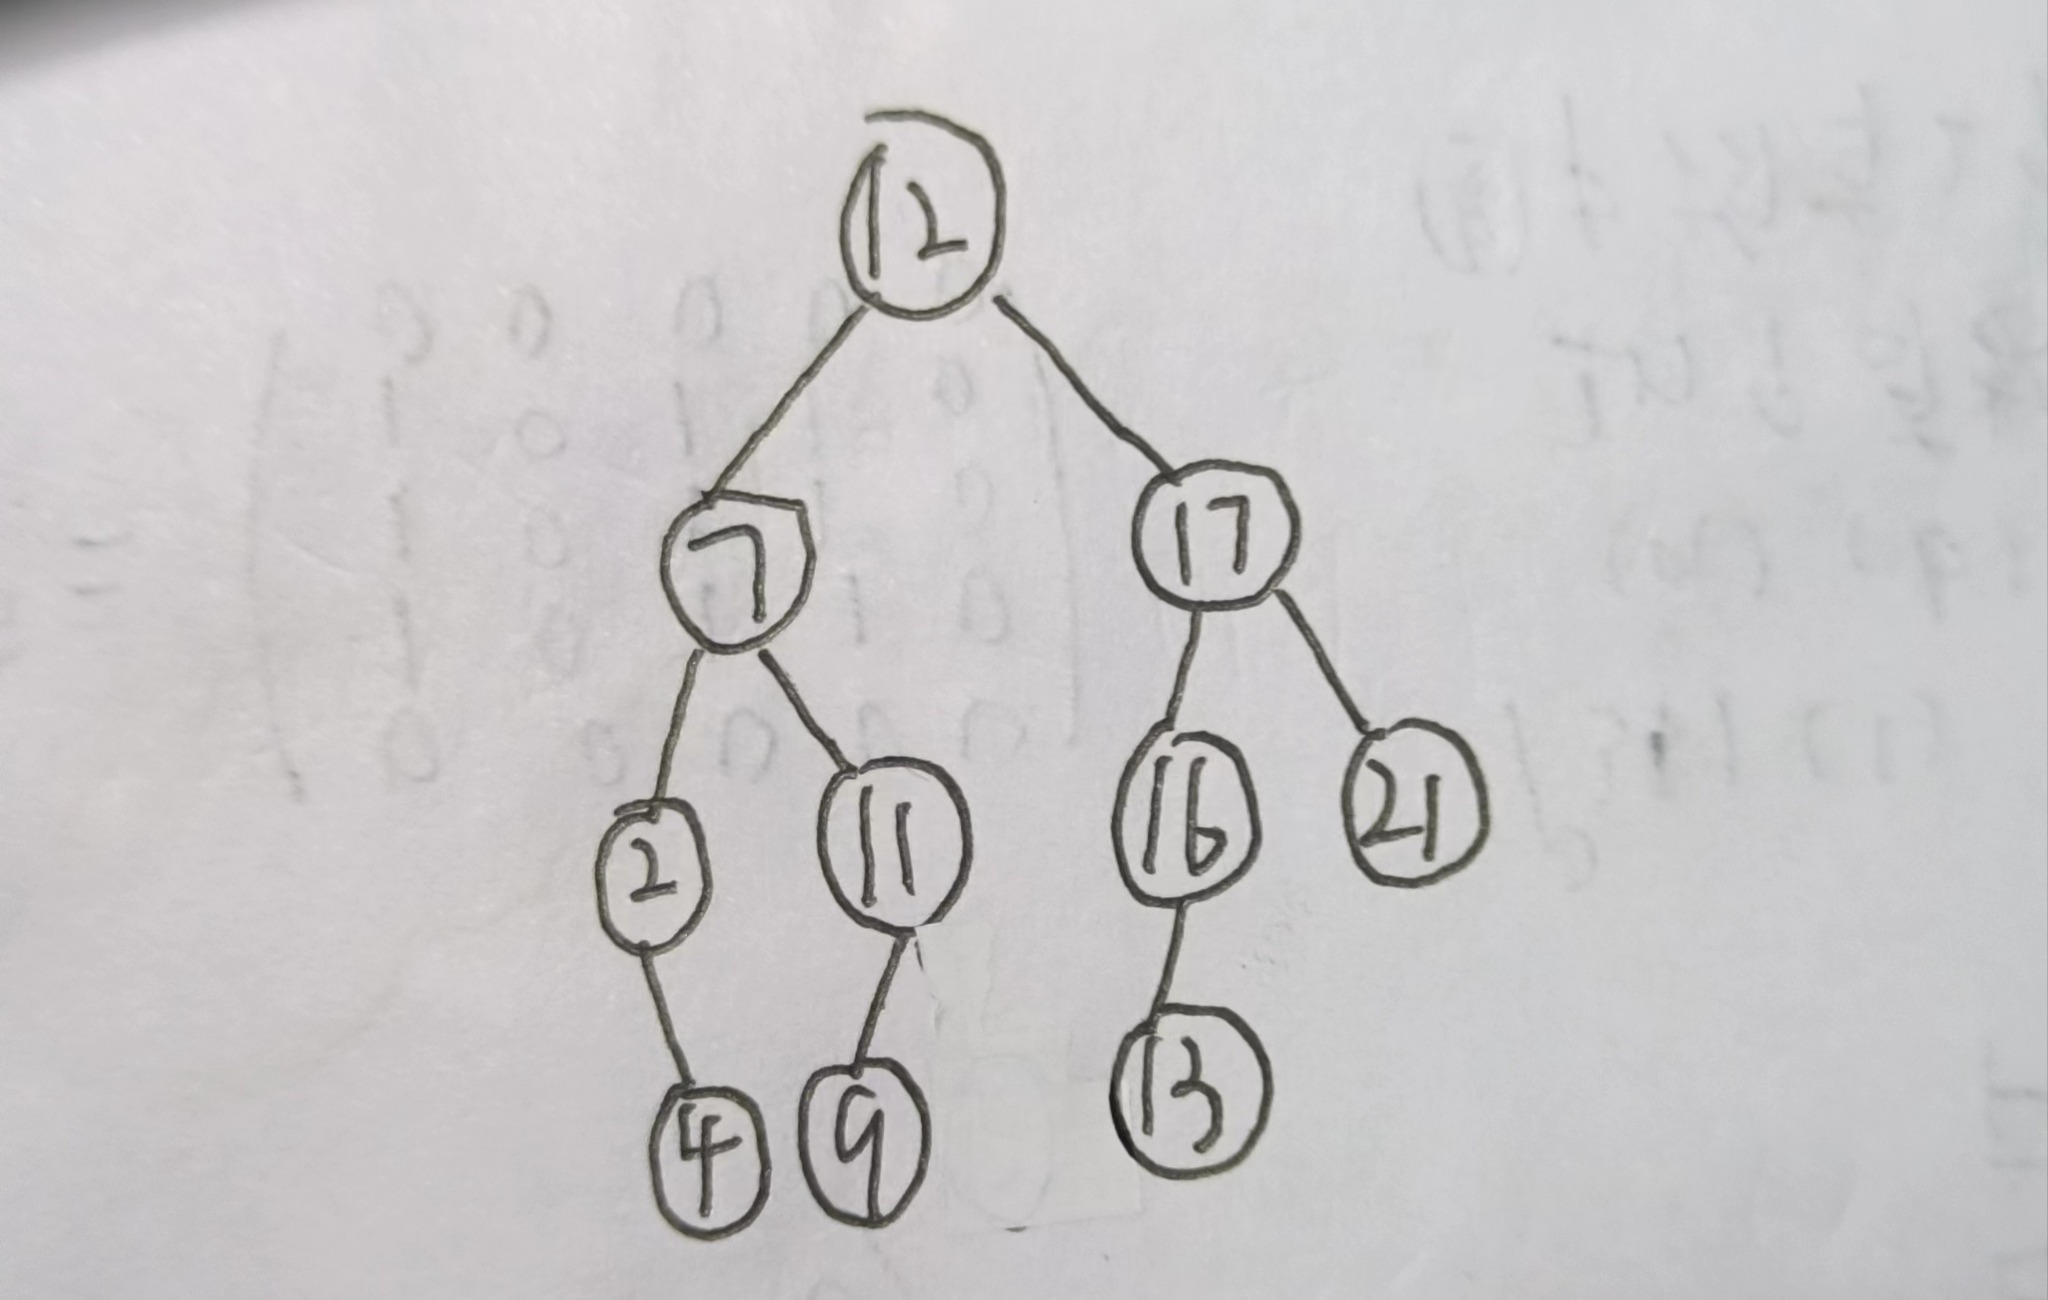 12
7 17
2 11 16 21
4 9 13